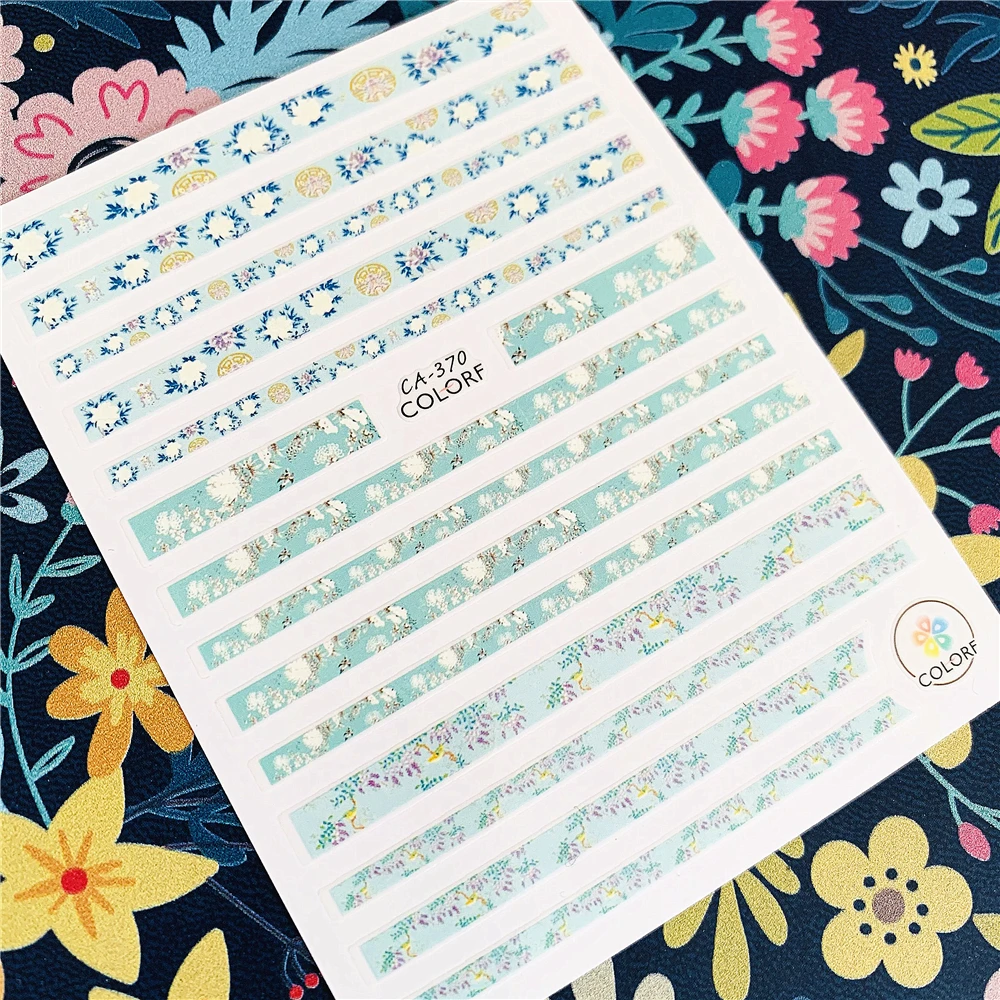 CA-370
COLORF
COLORF